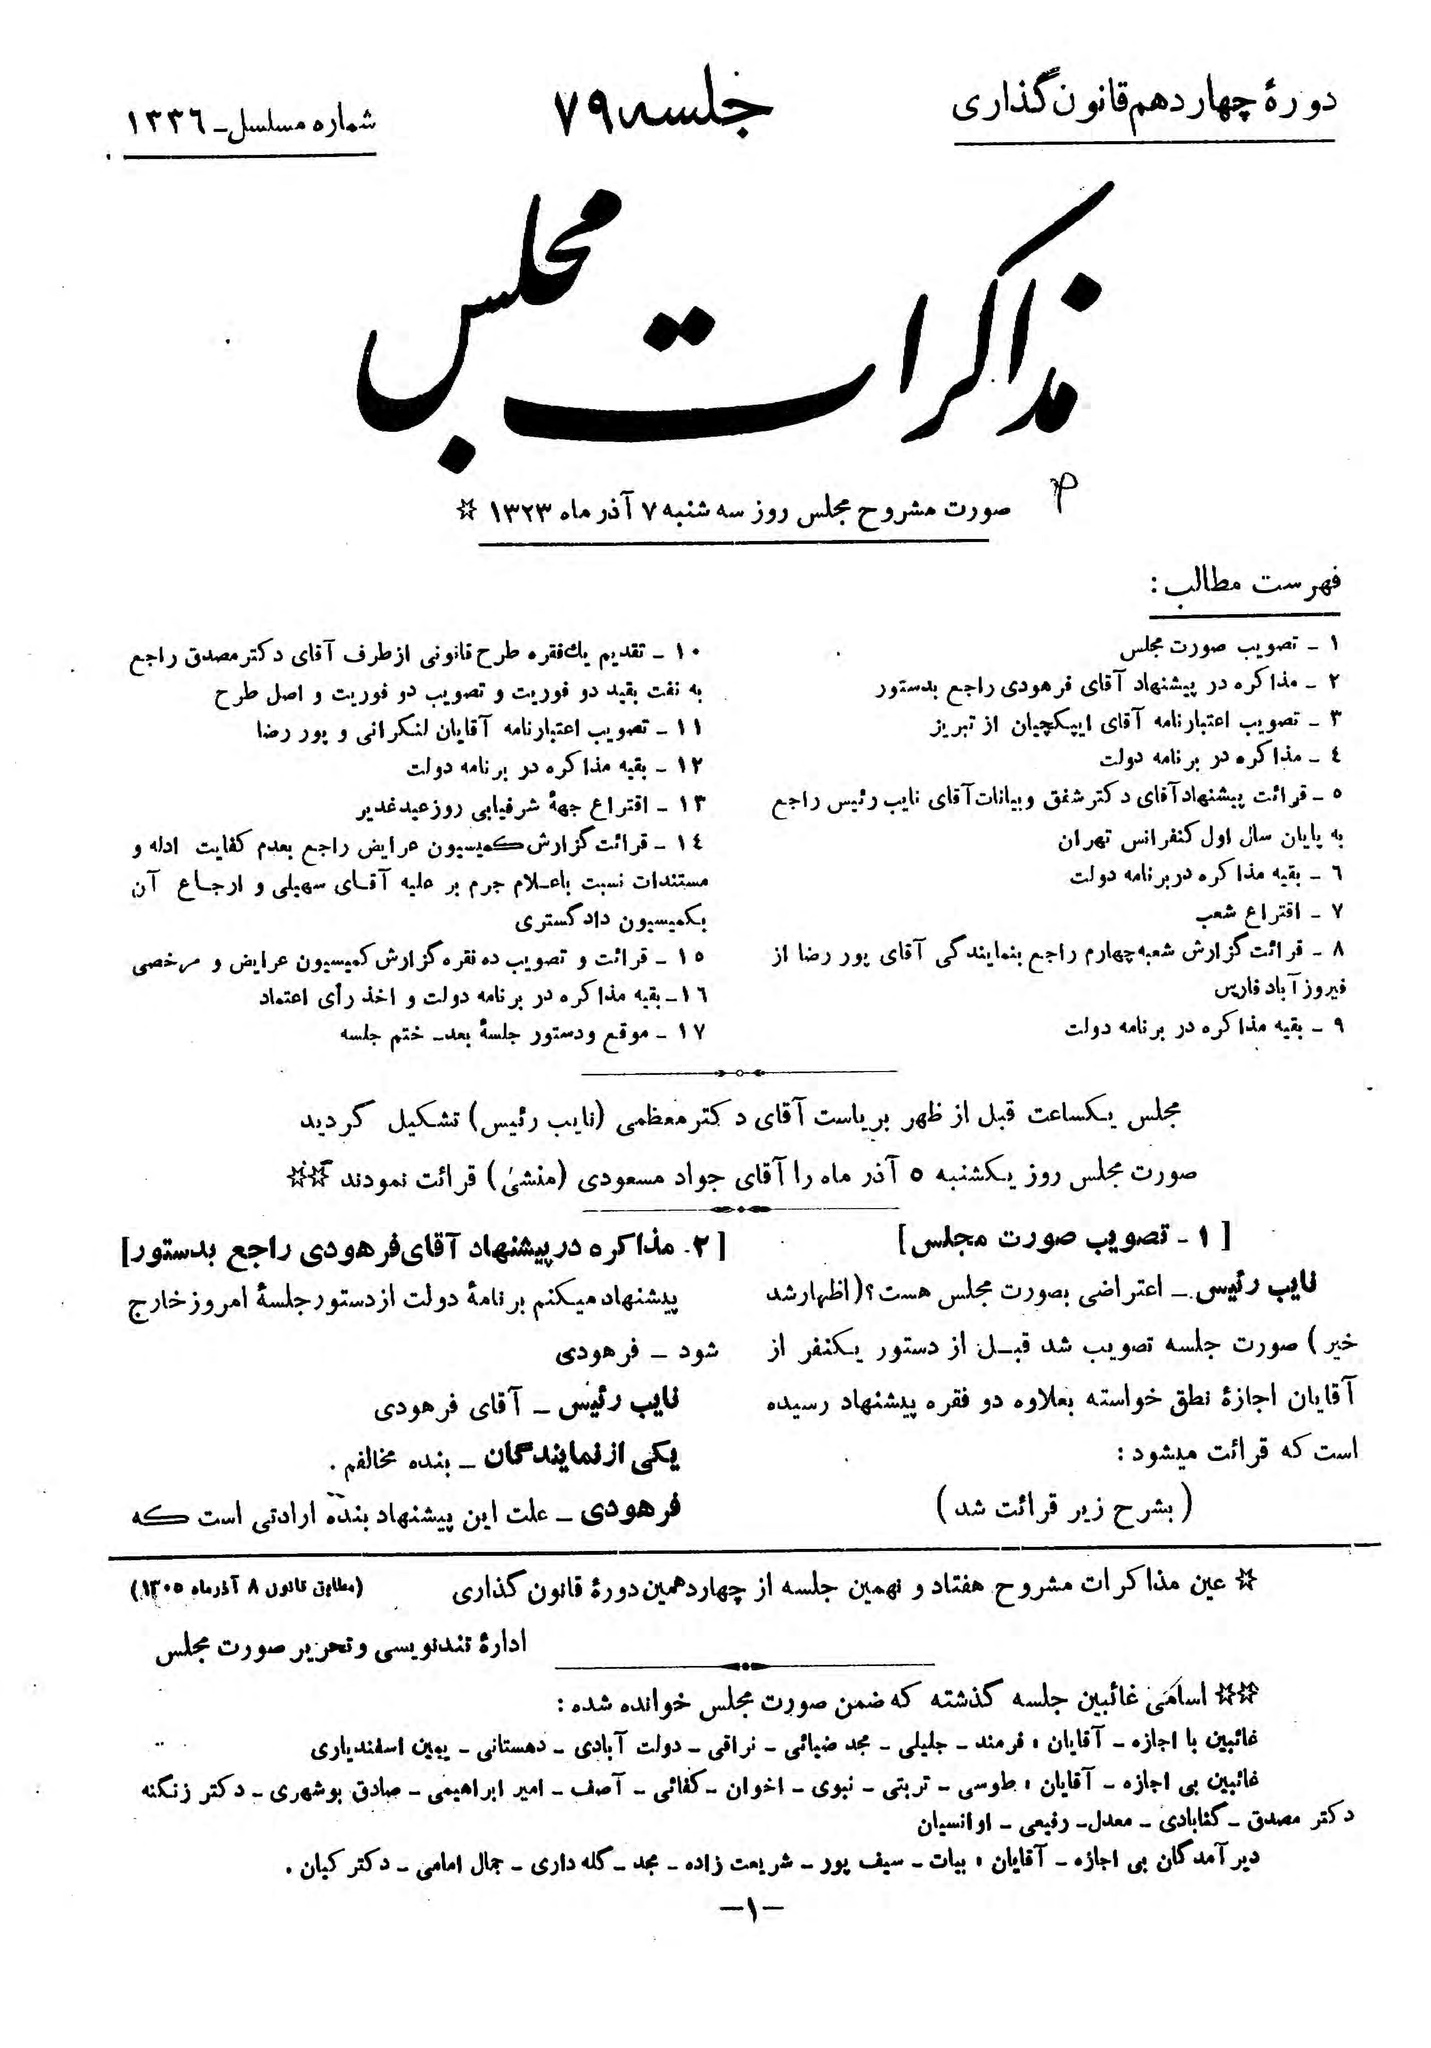 دورهٔ چهاردهم قانون گذاری
جلسه ۷۹
شماره مسلسل ـ ۱۳۳۶
مذاکرات مجلس
صورت مشروح مجلس روز سه شنبه ۷ آذر ماه ۱۳۲۳ ☆
فهرست مطالب :
۱ ـ تصویب صورت مجلس
۲ ـ مذاکره در پیشنهاد آقای فرهودی راجع بدستور
۳ ـ تصویب اعتبارنامه آقای ایپکچیان از تبریز
٤ ـ مذاکره در برنامه دولت
٥ ـ قرائت پیشنهاد آقای دکتر شفق و بیانات آقای نایب رئیس راجع
به پایان سال اول کنفرانس تهران
٦ ـ بقیه مذاکره در برنامه دولت
۷ ـ اقتراع شعب
۸ ـ قرائت گزارش شعبه چهارم راجع بنمایندگی آقای پور رضا از
فیروز آباد فارس
۹ ـ بقیه مذاکره در برنامه دولت
۱۰ ـ تقدیم یك فقره طرح قانونی از طرف آقای دکتر مصدق راجع
به نفت بقید دو فوریت و تصویب دو فوریت و اصل طرح
۱۱ ـ تصویب اعتبارنامه آقایان لنکرانی و پور رضا
۱۲ ـ بقیه مذاکره در برنامه دولت
۱۳ ـ اقتراع جههٔ شرفیابی روز عید غدیر
۱٤ ـ قرائت گزارش کمیسیون عرایض راجع بعدم کفایت ادله و
مستندات نسبت باعلام جرم بر علیه آقای سهیلی و ارجاع آن
بکمیسیون دادگستری
۱٥ ـ قرائت و تصویب ده فقره گزارش کمیسیون عرایض و مرخصی
۱٦ ـ بقیه مذاکره در برنامه دولت و اخذ رأی اعتماد
۱۷ ـ موقع و دستور جلسهٔ بعد ـ ختم جلسه
مجلس یکساعت قبل از ظهر بریاست آقای دکتر معظمی (نایب رئیس) تشکیل گردید
صورت مجلس روز یکشنبه ٥ آذر ماه را آقای جواد مسعودی (منشی) قرائت نمودند ☆☆
[ ۱ ـ تصویب صورت مجلس]
نایب رئیس ـ اعتراضی بصورت مجلس هست؟ (اظهار شد
خیر) صورت جلسه تصویب شد قبل از دستور یکنفر از
آقایان اجازهٔ نطق خواسته بعلاوه دو فقره پیشنهاد رسیده
است که قرائت میشود :
(بشرح زیر قرائت شد)
[ ۲ـ مذاکره در پیشنهاد آقای فرهودی راجع بدستور]
پیشنهاد میکنم برنامهٔ دولت از دستور جلسهٔ امروز خارج
شود ـ فرهودی
نایب رئیس ـ آقای فرهودی
یکی از نمایندگان ـ بنده مخالفم .
فرهودی ـ علت این پیشنهاد بنده ارادتی است که
☆ عین مذاکرات مشروح هفتاد و نهمین جلسه از چهاردهمین دورهٔ قانون گذاری (مطابق قانون ۸ آذر ماه ۱۳۰٥)
ادارهٔ تندنویسی و تحریر صورت مجلس
☆☆ اسامی غائبین جلسه گذشته که ضمن صورت مجلس خوانده شده :
غائبین با اجازه ـ آقایان : فرمند ـ جلیلی ـ مجد ضیائی ـ نراقی ـ دولت آبادی ـ دهستانی ـ یمین اسفندیاری
غائبین بی اجازه ـ آقایان : طوسی ـ تربتی ـ نبوی ـ اخوان ـ کفائی ـ آصف ـ امیر ابراهیمی ـ صادق بوشهری ـ دکتر زنگنه
دکتر مصدق ـ گنابادی ـ معدل ـ رفیعی ـ اوانسیان
دیر آمدگان بی اجازه ـ آقایان : بیات ـ سیف پور ـ شریعت زاده ـ مجد ـ گله داری ـ جمال امامی ـ دکتر کیان .
ـ۱ـ